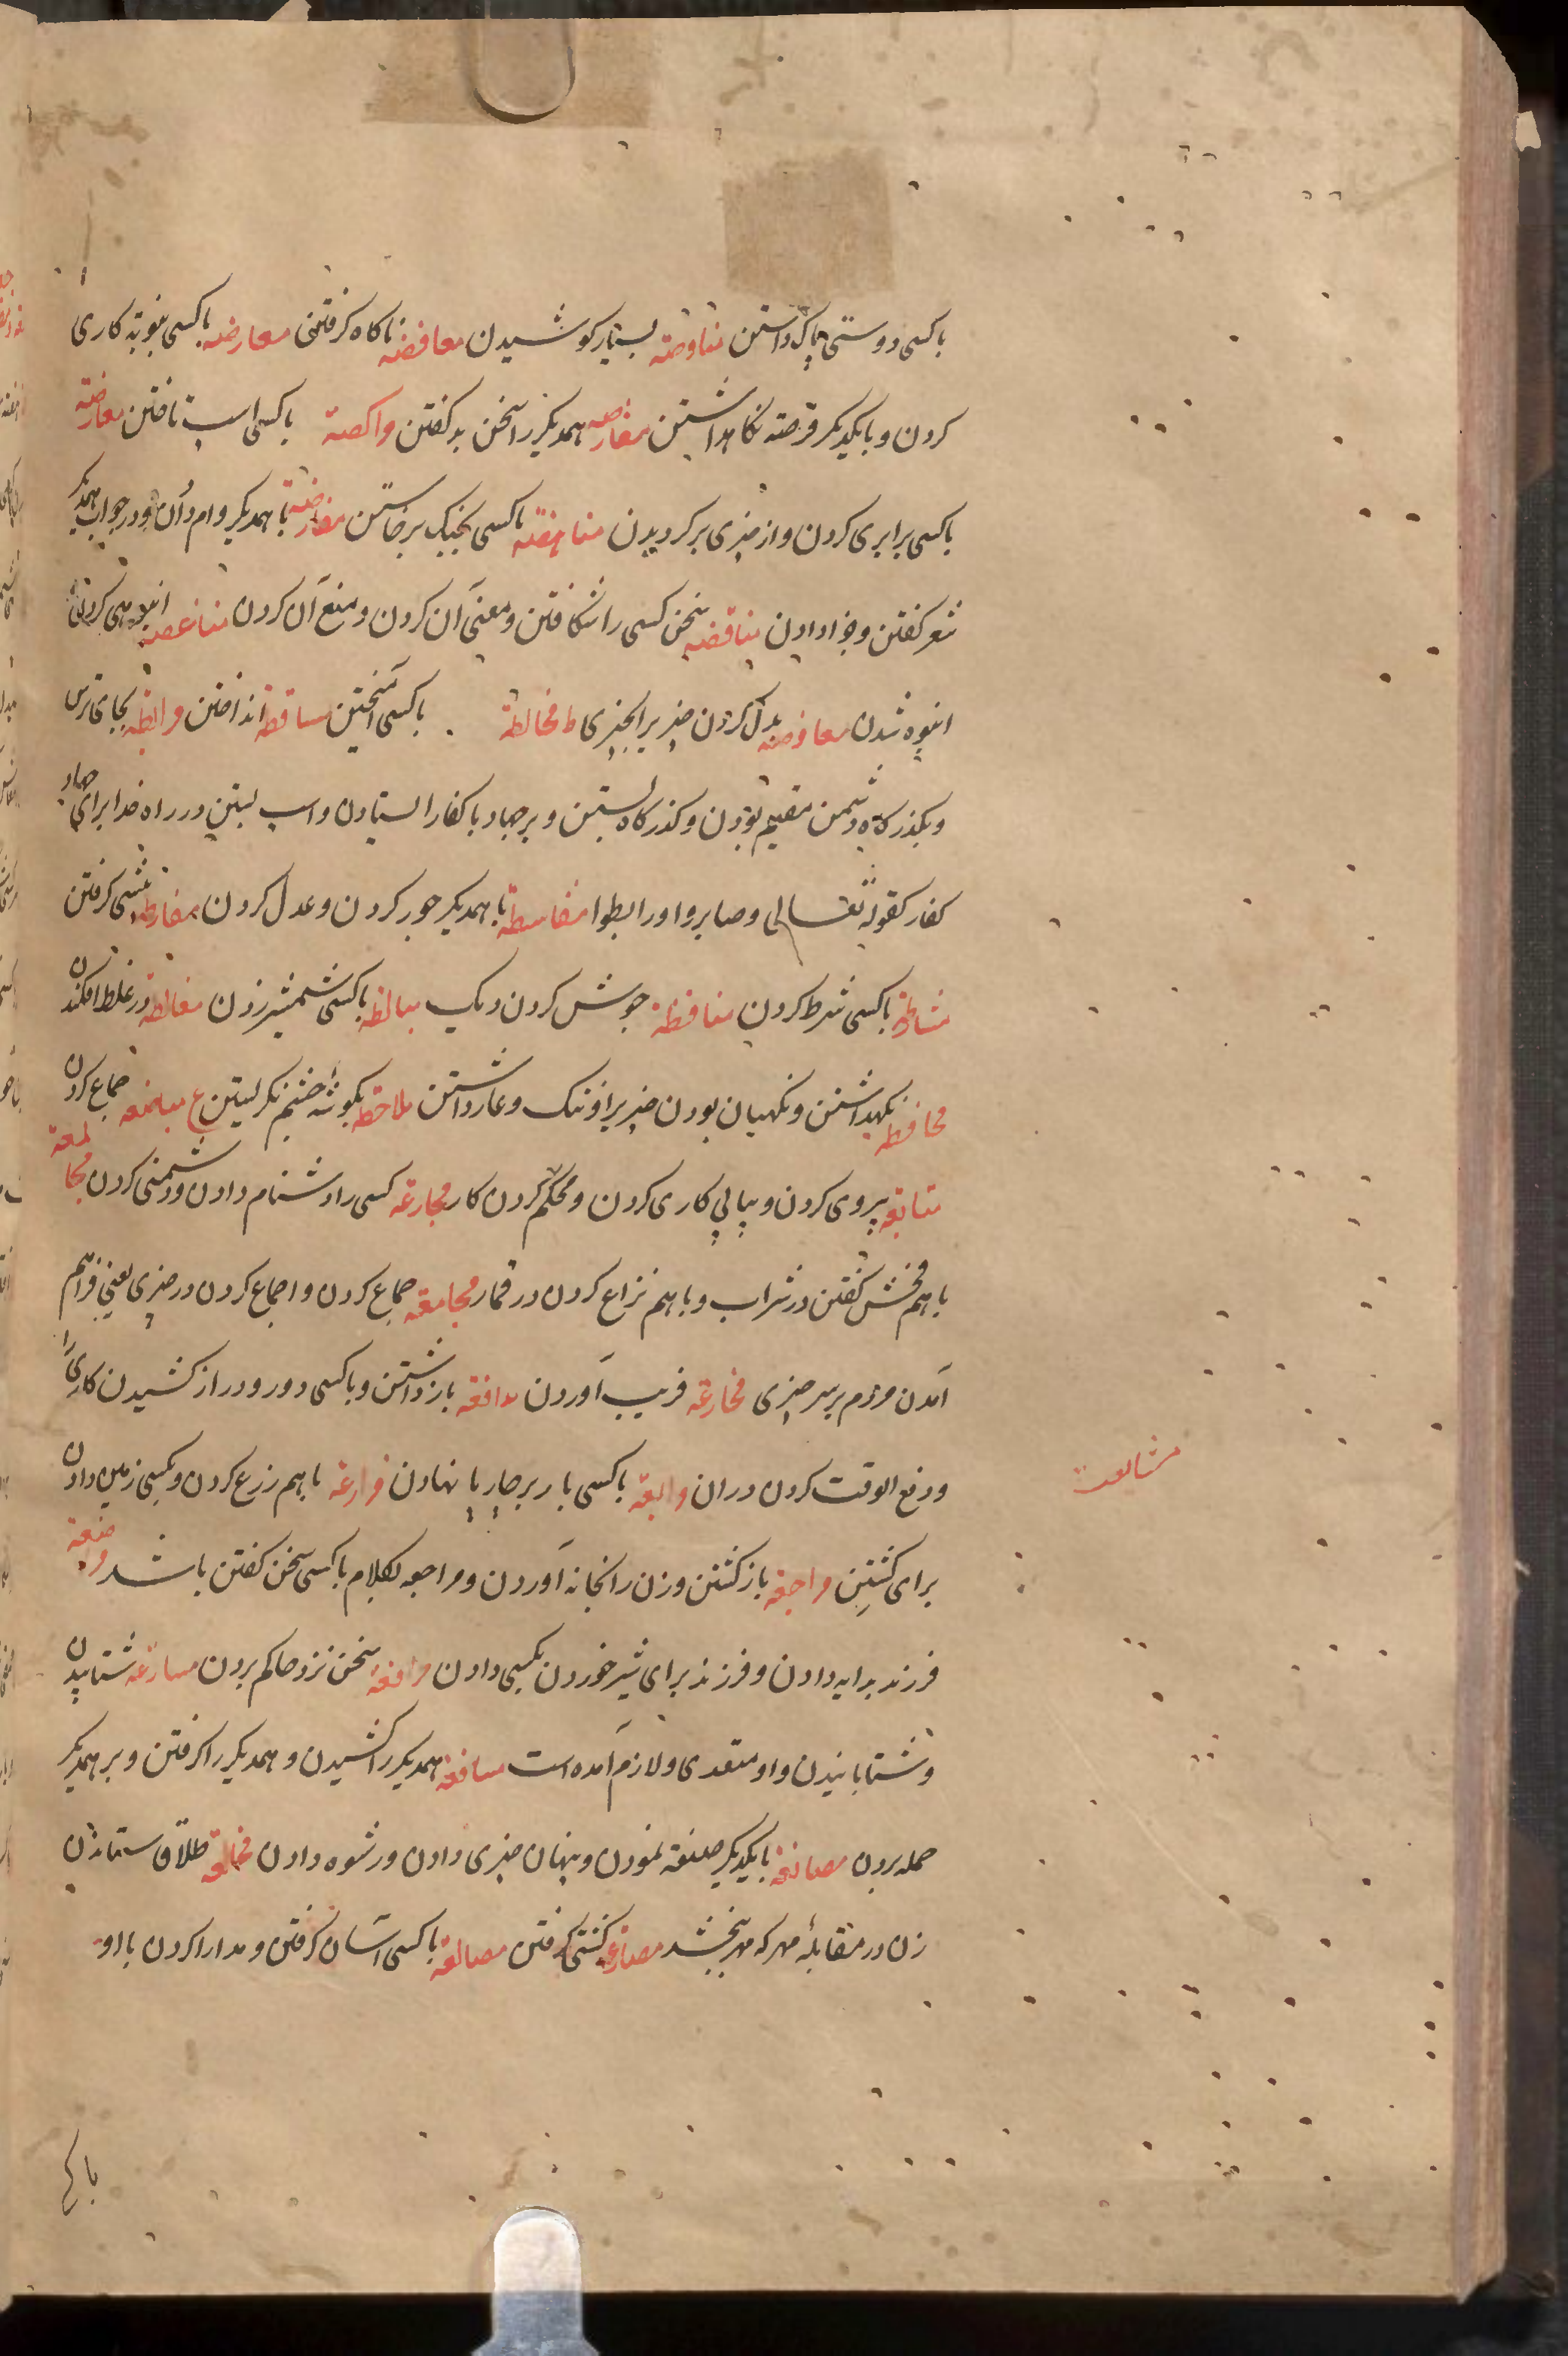 باکسی دوستی پاک داشتن مناوصة بسیار کوشیدن معافصة ناکاه کرفتن معارصه باکسی بنوبة کاری
کردن و بایکدیکر فرصة نکاهداشتن مفارصه همدیکر را سخن بد کفتن واکصة باکسی اسپ تاختن معارضة
باکسی برابری کردن و از چیزی برکردیدن مناهضة باکسی بجنک برخاستن مقارضة باهمدیکر وام دادن و در جواب همدیکر
شعر کفتن و جزا دادن مناقضه سخن کسی را شکافتن و معنی آن کردن و منع آن کردن مناغصه انبوهی کردن
انبوه شدن معاوضه بدل کردن چیز برابر چیزی ط مخالطة باکسی آمیختن مساقطة انداختن مرابطة بجای ترس
و بکذرکاه دشمن مقیم بودن و کذرکاه بستن و بر جهاد با کفار استادن و اسپ بستن در راه خدا برای جهاد
کفار کقوله تعالی وصابروا ورابطوا مقاسطة باهمدیکر جور کردن و عدل کردن مفارطه پیشی کرفتن
مشارطة باکسی شرط کردن منافطة جوش کردن دیک مبالطه باکسی شمشیر زدن مغالطة در غلط افکندن
محافظه نکهداشتن و نکهبان بودن چیز برا و ننک و عار داشتن ملاحظه بکوشهٔ چشم نکریستن ع مباضعه جماع کردن
متابعه پیروی کردن و پیاپی کاری کردن و محکم کردن کار مجارعة کسی را دشنام دادن و دشمنی کردن مجالعة
باهم فحش کفتن در شراب و باهم نزاع کردن در قمار مجامعة جماع کردن و اجماع کردن در چیزی یعنی فراهم
آمدن مردم بر سر چیزی مخادعة فریب آوردن مدافعة بازداشتن و باکسی دور و دراز کشیدن کاری را
و دفع الوقت کردن دران رابعة باکسی بار بر چارپا نهادن مزارعة باهم زرع کردن و بکسی زمین دادن
مشایعت
برای کشتن مراجعة بازکشتن و زن را بخانه آوردن و مراجعه بکلام باکسی سخن کفتن باشد مراضعة
فرزند بدایه دادن و فرزند برای شیر خوردن بکسی دادن مرافعة سخن نزد حاکم بردن مسارعة شتابیدن
و شتابانیدن و او متعدی و لازم آمده است مسافعة همدیکر را کشیدن و همدیکر را کرفتن و بر همدیکر
حمله بردن مصانعة بایکدیکر صنعة نمودن و پنهان چیزی دادن و رشوه دادن مخالعة طلاق ستادن
زن در مقابلهٔ مهر که مهر ببخشد مصارعة کشتی کرفتن مصالعة باکسی آسان کرفتن و مدارا کردن با او